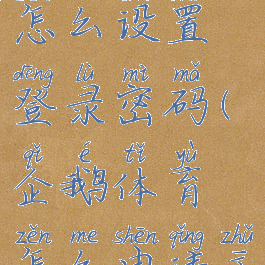 怎么设置
dēng lù mì mǎ
登录密码(
qǐ é tǐ yù
企鹅体育
zěn me shēn qǐng zhǔ
怎么申请主